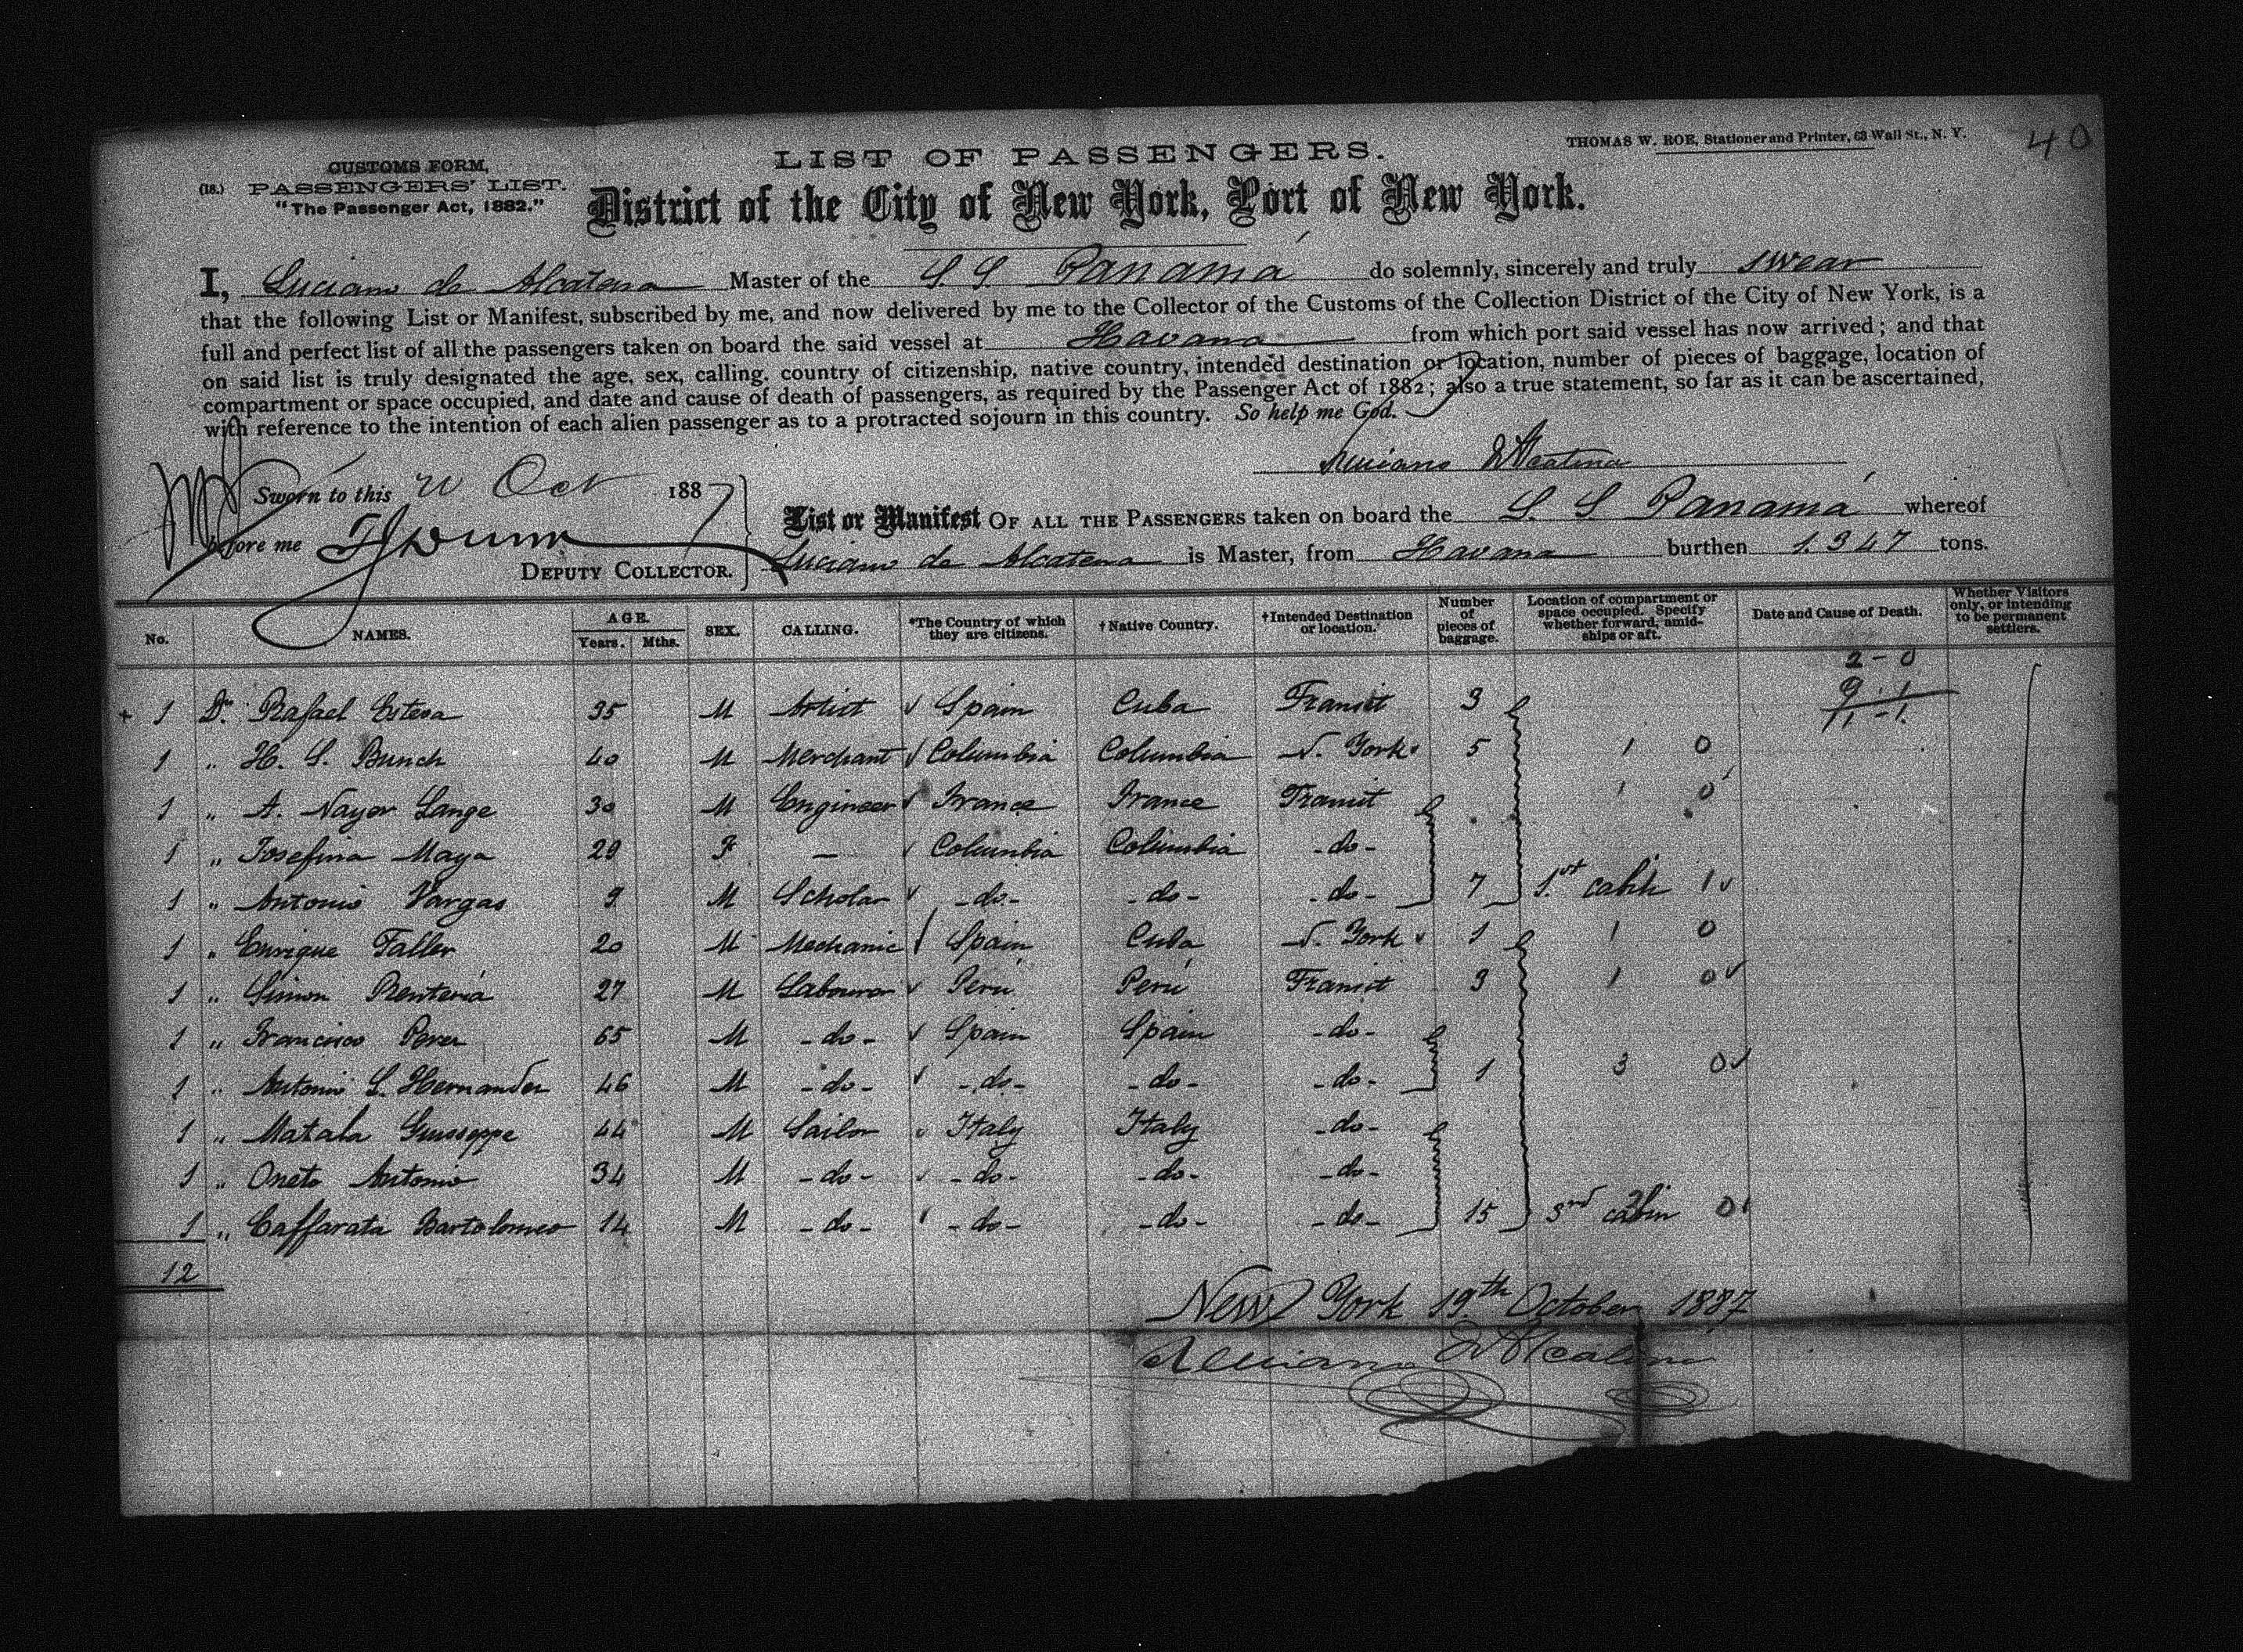 40
THOMAS W. ROE, Stationer and Printer, 63 Wall St., N. Y.
CUSTOMS FORM,
(18.) PASSENGERS' LIST.
"The Passenger Act, 1882."
LIST OF PASSENGERS.
District of the City of New York, Port of New York.
I, Luciano de Alcatena Master of the S. S. Panamá do solemnly, sincerely and truly swear
that the following List or Manifest, subscribed by me, and now delivered by me to the Collector of the Customs of the Collection District of the City of New York, is a
full and perfect list of all the passengers taken on board the said vessel at Havana from which port said vessel has now arrived; and that
on said list is truly designated the age, sex, calling, country of citizenship, native country, intended destination or location, number of pieces of baggage, location of
compartment or space occupied, and date and cause of death of passengers, as required by the Passenger Act of 1882; also a true statement, so far as it can be ascertained,
with reference to the intention of each alien passenger as to a protracted sojourn in this country. So help me God.
Luciano D'Alcatena
Sworn to this Oct 1887
before me
DEPUTY COLLECTOR.
List or Manifest OF ALL THE PASSENGERS taken on board the S. S. Panamá whereof
Luciano de Alcatena is Master, from Havana burthen 1.347 tons.
No. NAMES. AGE. Years. Mths. SEX. CALLING. *The Country of which they are citizens. †Native Country. †Intended Destination or location. Number of pieces of baggage. Location of compartment or space occupied. Specify whether forward, amidships or aft. Date and Cause of Death. Whether Visitors only, or intending to be permanent settlers.
2-0
9.1
11-1.
+ 1 Dn. Rafael Esteva 35 M Artist Spain Cuba Transit 3
1 " H. S. Bunch 40 M Merchant Columbia Columbia N. York 5 1 0
1 " A. Nayor Lange 30 M Engineer France France Transit 1 0
1 " Josefina Maya 29 F — Columbia Columbia -do-
1 " Antonio Vargas 9 M Scholar -do- -do- -do- 7 1st cabin 1
1 " Enrique Faller 20 M Mechanic Spain Cuba N. York 1 1 0
1 " Simon Renteria 27 M Labourer Perú Perú Transit 3 1 0
1 " Francisco Perez 65 M -do- Spain Spain -do-
1 " Antonio L. Hernandez 46 M -do- -do- -do- -do- 1 3 0
1 " Matala Giusseppe 44 M Sailor Italy Italy -do-
1 " Oneto Antonio 34 M -do- -do- -do- -do-
1 " Caffarata Bartolomeo 14 M -do- -do- -do- -do- 15 3rd cabin 0
12
New York 19th October 1887
Luciano D'Alcatena